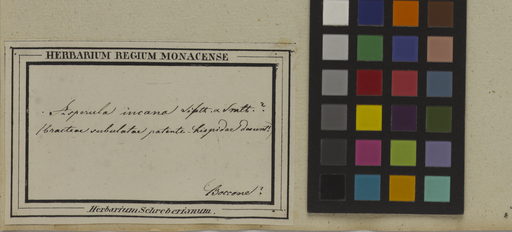 HERBARIUM REGIUM MONACENSE
Asperula incana Sibth. & Smth.?
(bracteae subulatae patente-hispidae desunt)
Boccone?
Herbarium Schreberianum.